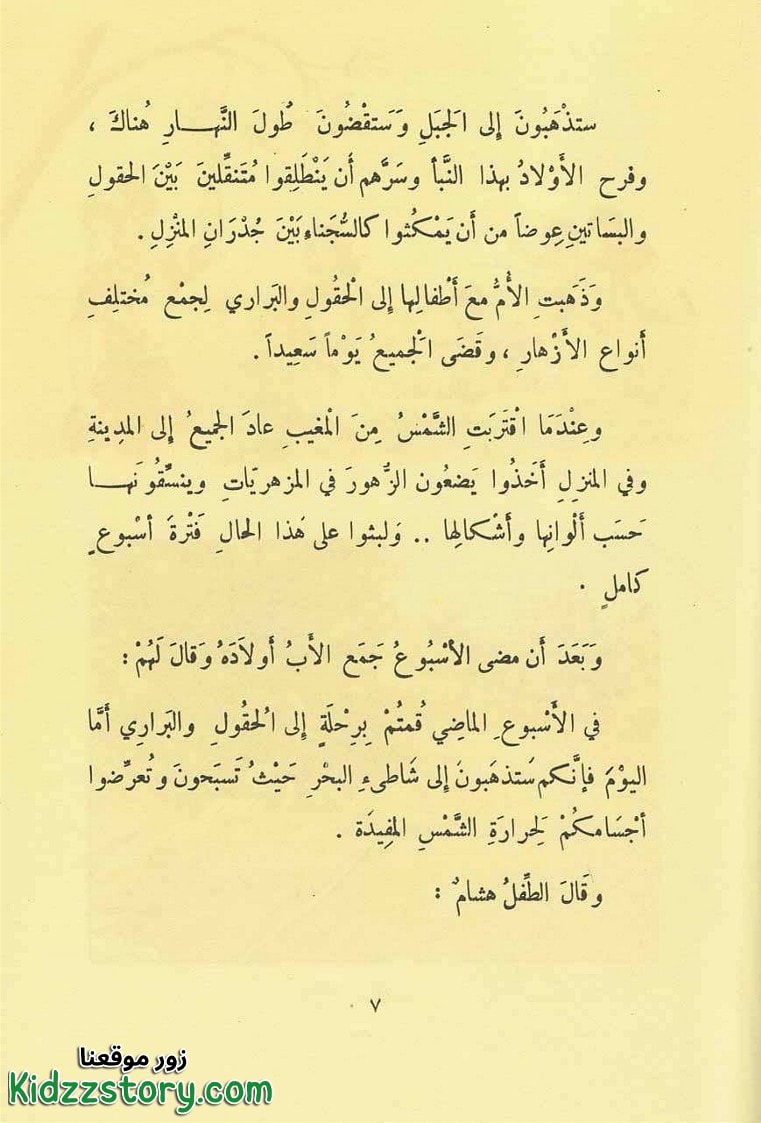 ستذْهَبُونَ إِلى الَجبَلِ وَسَتقْضُونَ طُولَ النَّهـــارِ هُناكَ ،
وفرح الأَوْلادُ بهذا النَّبأ وسَرَّهم أَن يَنْطَلِقوا مُتَنقِّلينَ بَيْنَ الحقولِ
والبسَاتينِ عِوضاً من أَن يَمْكُثوا كالسُّجَناءِ بَيْنَ جُدْرَانِ المنْزِلِ .
وَذَهبتِ الأُمُّ معَ أَطْفالِها إِلى الْحقُولِ والبَراري لِجمْع مُختلِفِ
أَنواع الأَزْهارِ ، وقَضَى الْجميعُ يَوْماً سَعِيداً .
وعِنْدَمَا اقْتَربَتِ الشَّمْسُ مِنَ الْمغيبِ عادَ الجميعُ إِلى المدِينةِ
وفي المنزلِ أَخَذُوا يَضعُون الزُّهورَ في المزهريّاتِ وينسِّقُونَهـــا
حَسَب أَلْوانِها وأَشْكالِها .. وَلبثوا على هَذا الحالِ فَتْرةَ أسْبوعٍ
كاملٍ .
وَبَعَدَ أَن مضى الأسْبُوعُ جَمَع الأَبُ أَولاَدَهُ وَقالَ لَهُمْ :
في الأَسْبوعِ الماضِي قُمتُمْ بِرِحْلَةٍ إِلى الُحقُولِ والبَراري أَمَّا
اليوْمَ فإِنَّكم سَتذهَبونَ إِلى شَاطىءِ البحْرِ حَيْثُ تَسبَحونَ وتُعرِّضوا
أجْسَامكُمْ لَحِرارَةِ الشَّمْسِ المفِيدَة .
وقَالَ الطِّفلُ هشامٌ :
٧
زور موقعنا
Kidzzstory.com